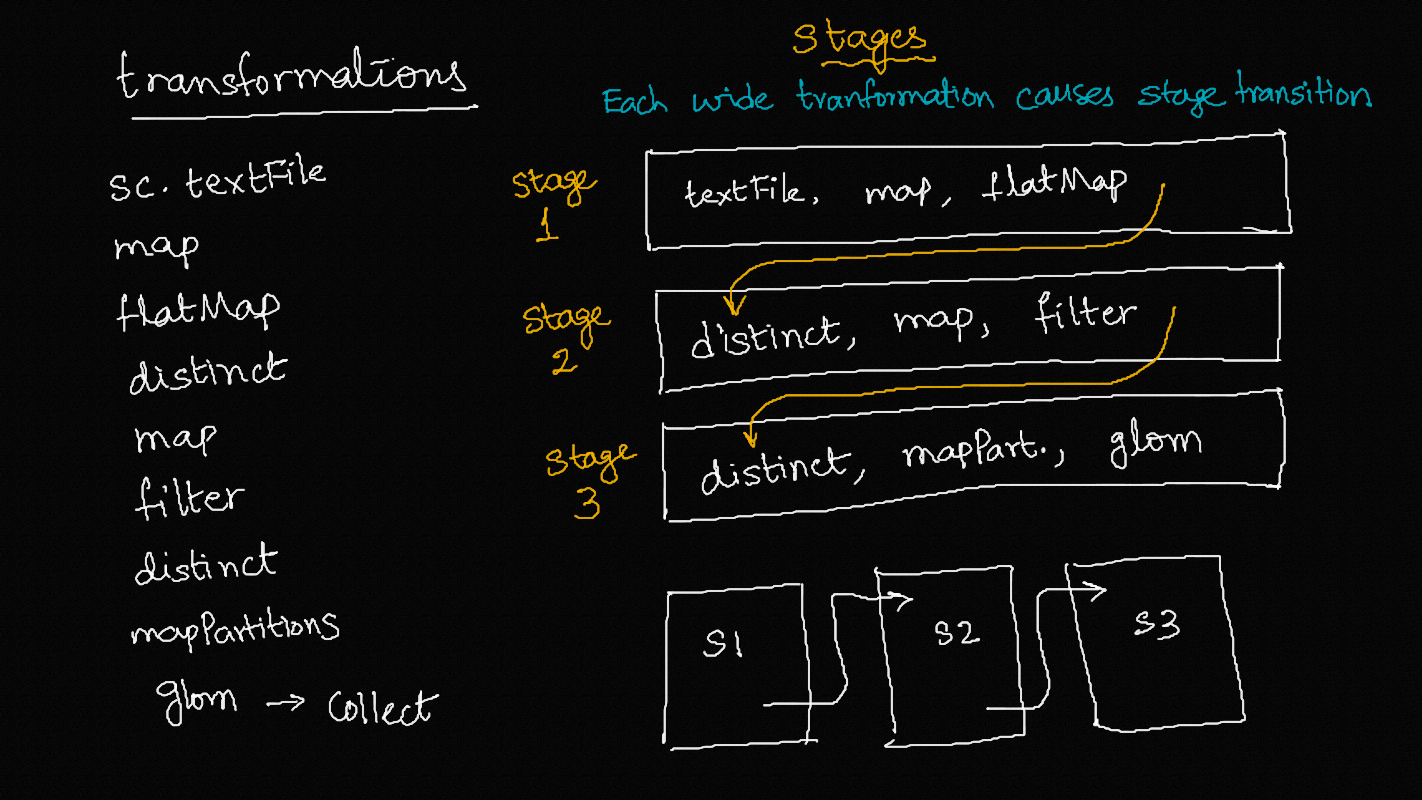 transformations
sc. textFile
map
flatMap
distinct
map
filter
distinct
mapPartitions
glom → Collect
Stages
Each wide tranformation causes stage transition
Stage 1
textFile, map, flatMap
Stage 2
distinct, map, filter
Stage 3
distinct, mapPart., glom
S1
S2
S3